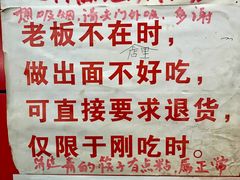 想吸烟,请去门外吸,多谢
老板不在时,
店里
做出面不好吃,
可直接要求退货,
仅限于刚吃时。
的筷子有点粘,属正常